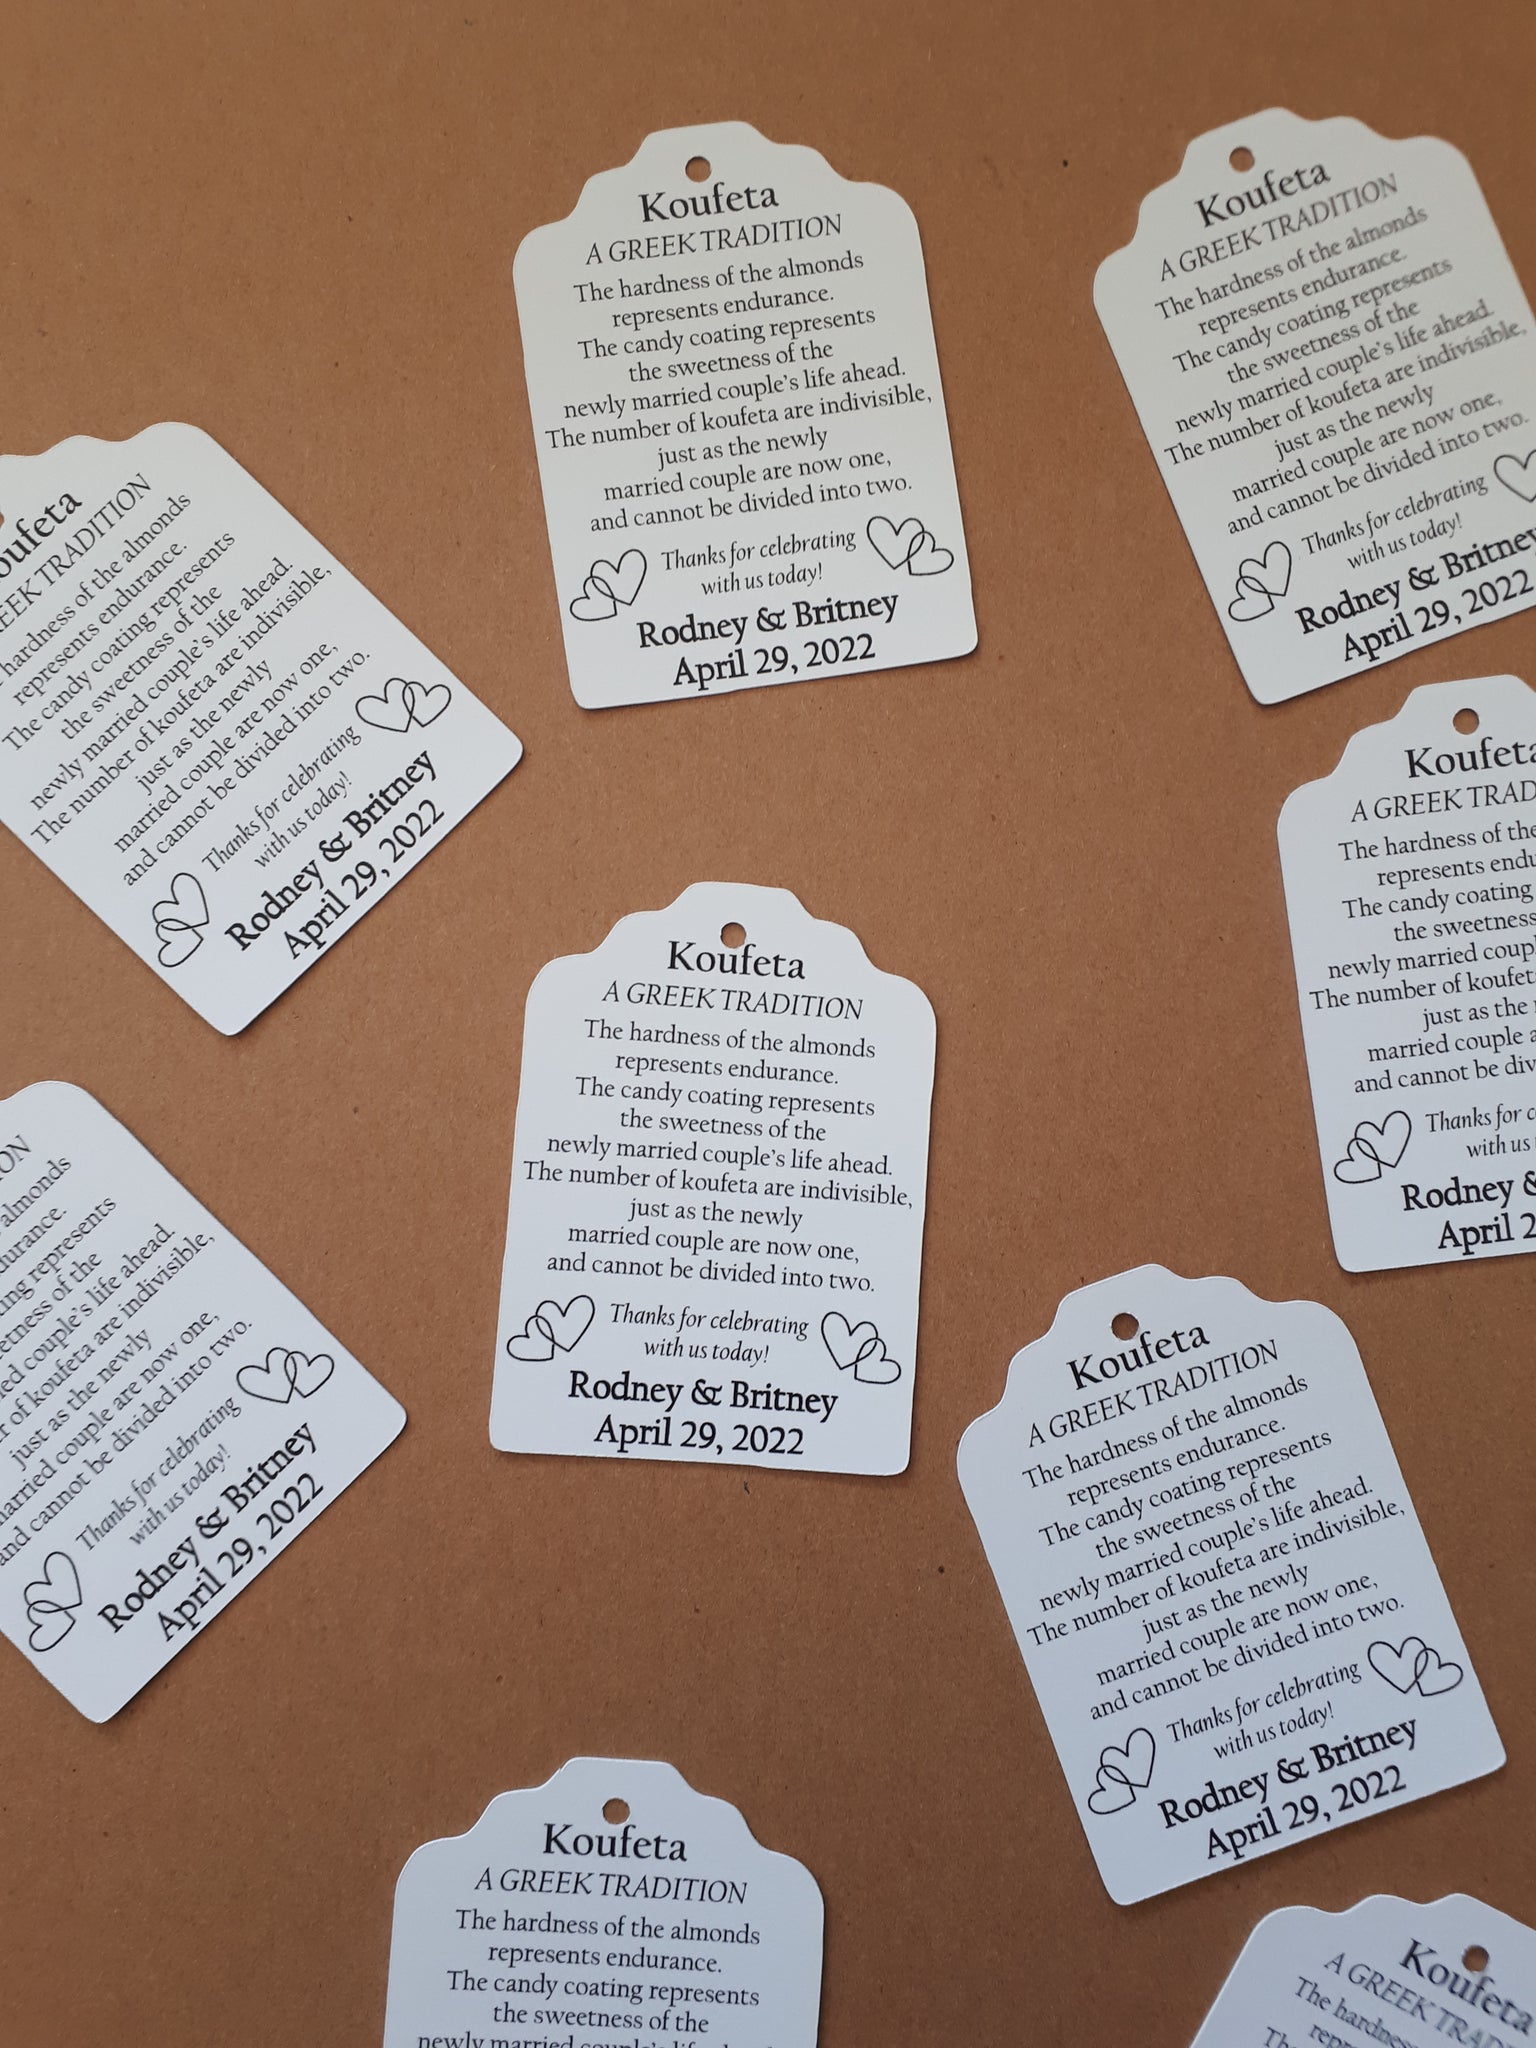 Koufeta
A GREEK TRADITION
The hardness of the almonds
represents endurance.
The candy coating represents
the sweetness of the
newly married couple's life ahead.
The number of koufeta are indivisible,
just as the newly
married couple are now one,
and cannot be divided into two.
Thanks for celebrating
with us today!
Rodney & Britney
April 29, 2022
Koufeta
A GREEK TRADITION
The hardness of the almonds
represents endurance.
The candy coating represents
the sweetness of the
newly married couple's life ahead.
The number of koufeta are indivisible,
just as the newly
married couple are now one,
and cannot be divided into two.
Thanks for celebrating
with us today!
Rodney & Britney
April 29, 2022
oufeta
EEK TRADITION
hardness of the almonds
represents endurance.
The candy coating represents
the sweetness of the
newly married couple's life ahead.
The number of koufeta are indivisible,
just as the newly
married couple are now one,
and cannot be divided into two.
Thanks for celebrating
with us today!
Rodney & Britney
April 29, 2022
Koufeta
A GREEK TRAD
The hardness of the
represents endu
The candy coating
the sweetness
newly married coup
The number of koufet
just as the
married couple a
and cannot be div
Thanks for c
with us
Rodney &
April 2
Koufeta
A GREEK TRADITION
The hardness of the almonds
represents endurance.
The candy coating represents
the sweetness of the
newly married couple's life ahead.
The number of koufeta are indivisible,
just as the newly
married couple are now one,
and cannot be divided into two.
Thanks for celebrating
with us today!
Rodney & Britney
April 29, 2022
ON
almonds
durance.
ing represents
etness of the
ied couple's life ahead.
r of koufeta are indivisible,
just as the newly
married couple are now one,
and cannot be divided into two.
Thanks for celebrating
with us today!
Rodney & Britney
April 29, 2022
Koufeta
A GREEK TRADITION
The hardness of the almonds
represents endurance.
The candy coating represents
the sweetness of the
newly married couple's life ahead.
The number of koufeta are indivisible,
just as the newly
married couple are now one,
and cannot be divided into two.
Thanks for celebrating
with us today!
Rodney & Britney
April 29, 2022
Koufeta
A GREEK TRADITION
The hardness of the almonds
represents endurance.
The candy coating represents
the sweetness of the
newly married couple's life ahead.
Koufeta
A GREEK TRAD
The hardness
repr
The